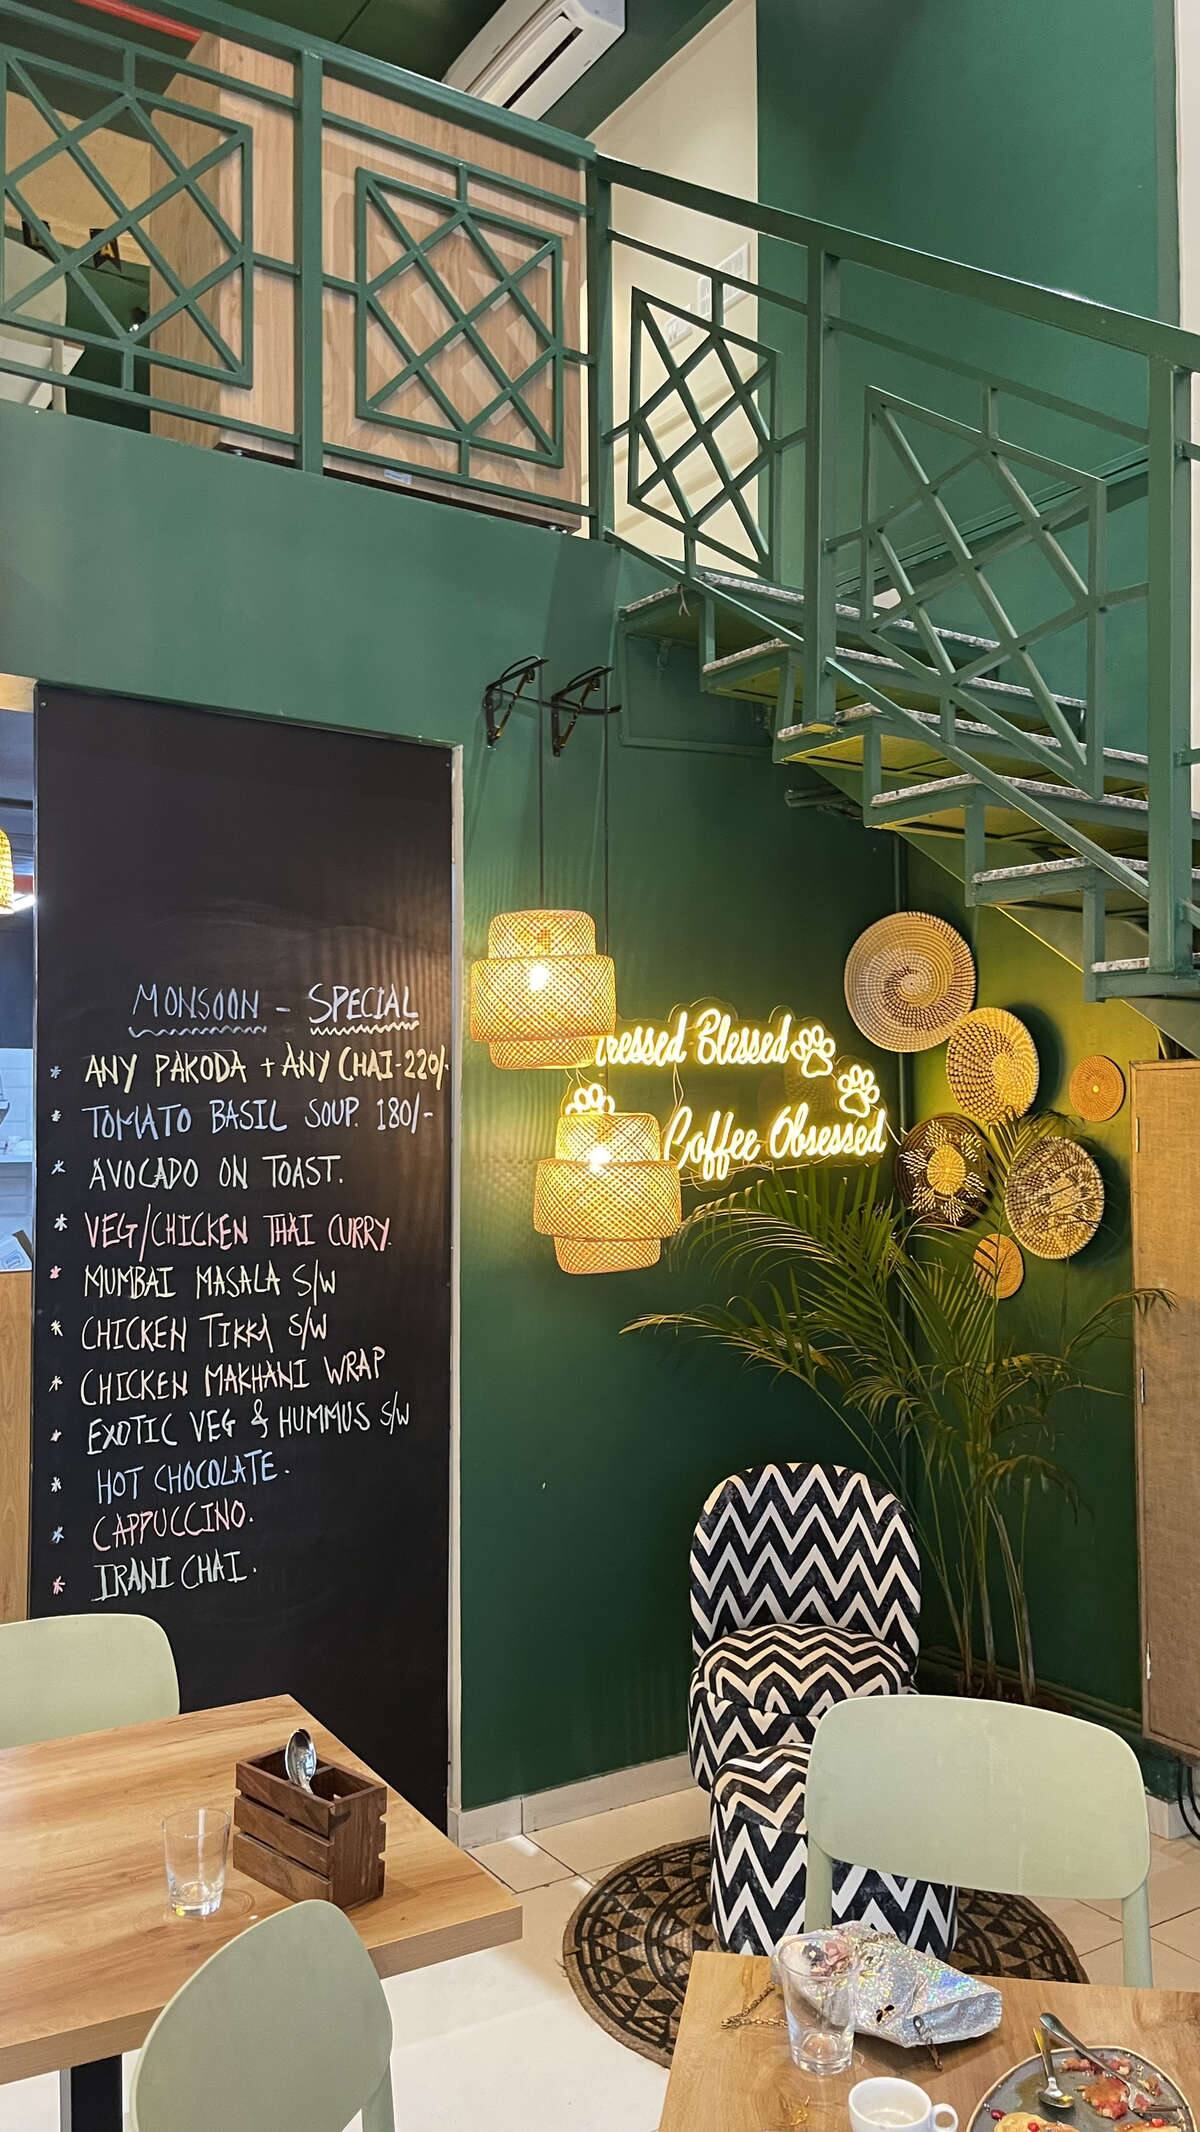 MONSOON - SPECIAL
* ANY PAKODA + ANY CHAI-220/-
* TOMATO BASIL SOUP. 180/-
* AVOCADO ON TOAST.
* VEG/CHICKEN THAI CURRY.
* MUMBAI MASALA S/W
* CHICKEN TIKKA S/W
* CHICKEN MAKHANI WRAP
* EXOTIC VEG & HUMMUS S/W
* HOT CHOCOLATE.
* CAPPUCCINO.
* IRANI CHAI.
Blessed
Coffee Obsessed